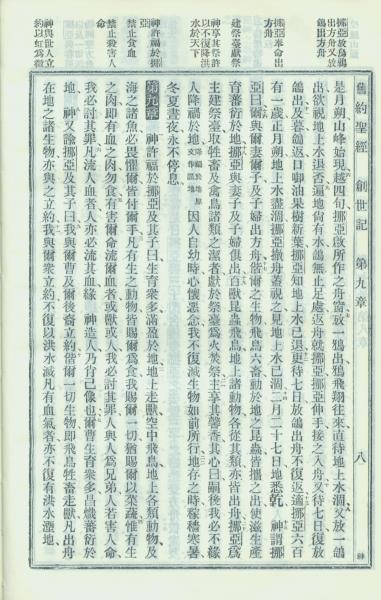 舊約聖經 創世記 第九章 八
挪亞放烏鴉
出方舟又放
鴿出方舟
挪亞奉命出
方舟
建祭臺獻祭
神享其祭許
以不復降洪
水於天下
神許福於挪
亞
禁止食血
禁止殺害人
命
神與世人立
約以虹為徵
是月朔山峰始現越四旬挪亞啟所作之舟窗放一鴉出鴉飛翔往來直待地上水涸又放一鴿
出欲視地上水退否遍地尚有水鴿無止足處返舟就挪亞挪亞伸手接之入舟又待七日復放
鴿出及暮鴿返口啣油果樹新葉挪亞知地上水已退更待七日放鴿出舟不復返迨挪亞六百
有一歲正月朔地上水盡涸挪亞撤舟蓋視之見地上水已涸二月二十七日地悉乾 神謂挪
亞曰爾與爾妻爾子及子婦出方舟偕爾之生物飛鳥六畜動於地之昆蟲皆攜之出使滋生產
育蕃衍於地挪亞與妻子及子婦俱出百獸昆蟲飛鳥地上諸動物各從其類亦皆出舟挪亞為
主建祭臺取牲畜及禽鳥諸類之潔者獻於祭臺為火焚祭主享其馨香其心曰嗣後我必不緣
人降禍於地 因人自幼時心懷惡念我不復滅生物如前所行地存之時稼穡寒暑
冬夏晝夜永不停息
第九章 神許福於挪亞及其子曰生育眾多滿盈於地地上走獸空中飛鳥地上各類動物及
海之諸魚必畏懼爾皆付爾手凡有生之動物皆賜爾為食我賜爾一切猶賜爾以菜蔬惟有生
之肉即有血之肉勿食有害爾命流爾血者或獸或人我必討其罪人與人為兄弟人若害人命
我必討其罪凡流人血者人亦必流其血緣 神造人乃肖己像也爾曹生育眾多昌熾蕃衍於
地 神又諭挪亞及其子曰我與爾曹及爾後裔立約偕爾一切生物即飛鳥牲畜走獸凡出舟
在地之諸生物亦與之立約我與爾眾立約不復以洪水滅凡有血氣者亦不復有洪水湮地